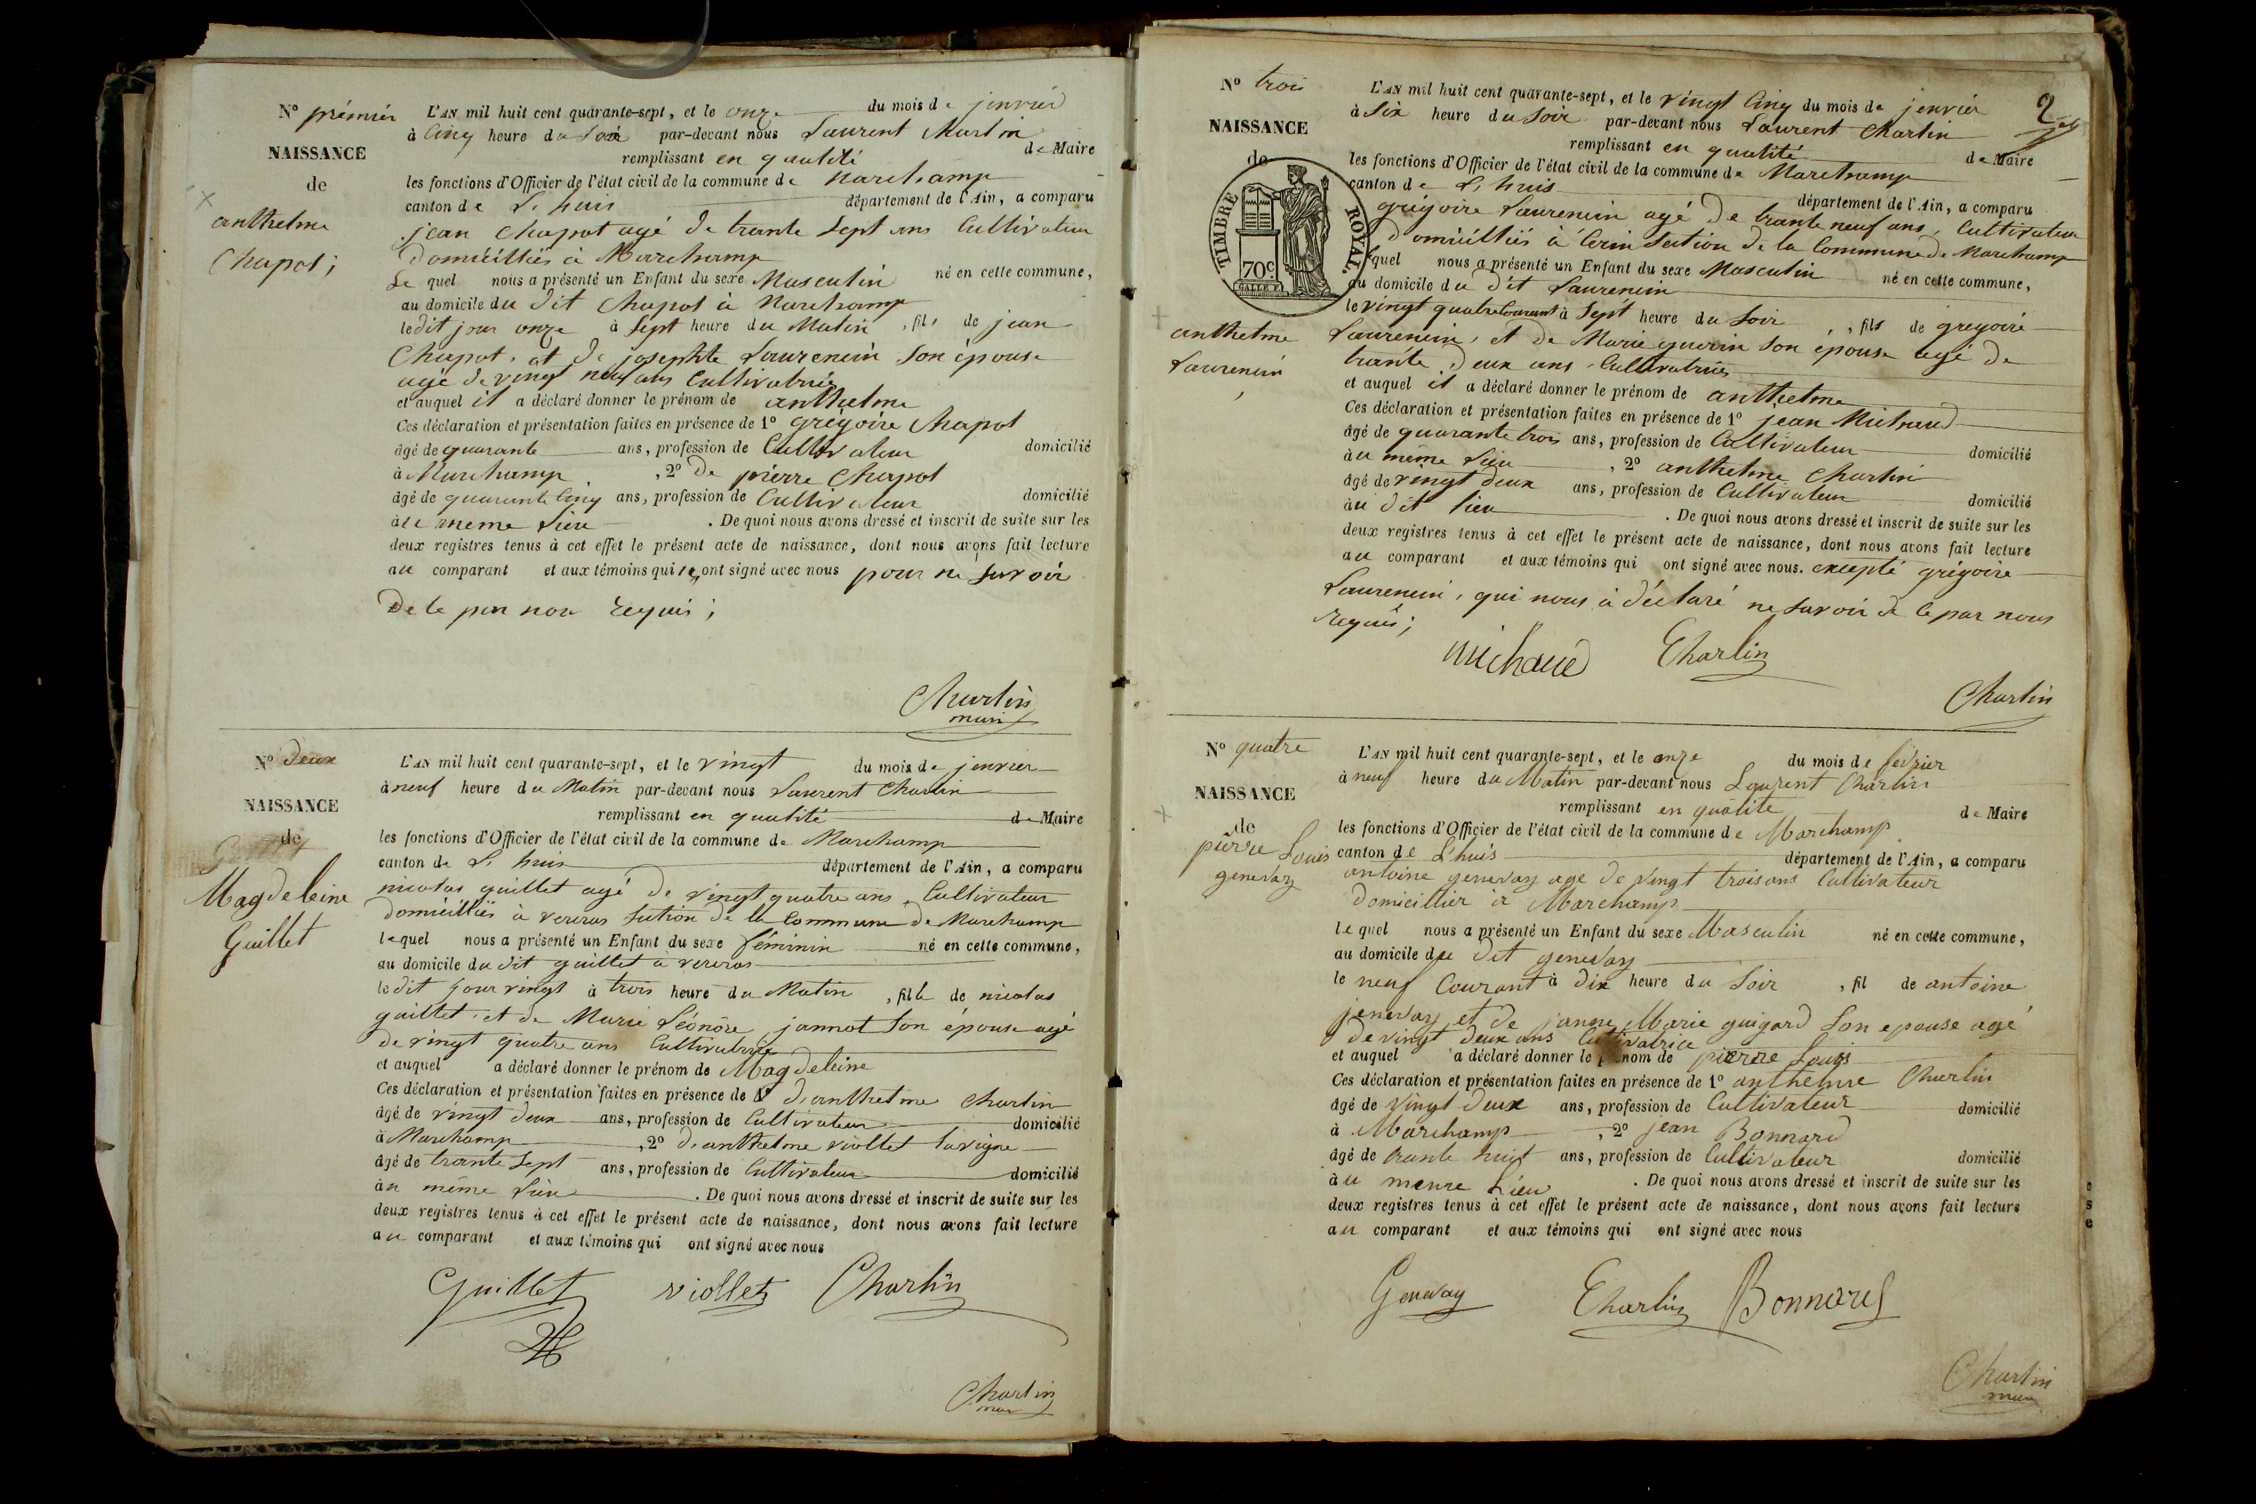 N° prémier
NAISSANCE
de
anthelme
Chapot ;
L'AN mil huit cent quarante-sept, et le onze du mois de jenvier
à Cinq heure du Soir par-devant nous Laurent Charlin
remplissant en qualité de Maire
les fonctions d'Officier de l'état civil de la commune de Marchamp
canton de L'huis département de l'Ain, a comparu
jean Chapot agé de trante Sept ans Cultivateur
domicilliés à Marchamp
Le quel nous a présenté un Enfant du sexe Masculin né en cette commune,
au domicile du dit Chapot à Marchamp
le dit jour onze à Sept heure du Matin , fils de jean
Chapot . et de josephte Laurencin Son épouse
agé de vingt neuf ans Cultivatrice
et auquel il a déclaré donner le prénom de anthelme
Ces déclaration et présentation faites en présence de 1° grégoire Chapot
âgé de quarante ans, profession de Cultivateur domicilié
à Marchamp , 2° De pierre Chapot
âgé de quarante Cinq ans, profession de Cultivateur domicilié
à u meme Lieu . De quoi nous avons dressé et inscrit de suite sur les
deux registres tenus à cet effet le présent acte de naissance, dont nous avons fait lecture
au comparant et aux témoins qui n'ont signé avec nous pour ne Savoir
De le par nou requis ;
Charlin
maire
N° Deux
NAISSANCE
de
Magdeleine
Guillet
L'AN mil huit cent quarante-sept, et le vingt du mois de jenvier
à neuf heure du Matin par-devant nous Laurent Charlin
remplissant en qualité de Maire
les fonctions d'Officier de l'état civil de la commune de Marchamp
canton de L'huis département de l'Ain, a comparu
nicolas guillet agé de vingt quatre ans Cultivateur
domicilliés à vereras Section de la Commune de Marchamp
le quel nous a présenté un Enfant du sexe féminin né en cette commune,
au domicile du dit guillet a vereras
le dit jour vingt à trois heure du Matin , fille de nicolas
guillet . et de Marie Léonore jannot Son épouse agé
de vingt quatre ans Cultivatrice
et auquel a déclaré donner le prénom de Magdeleine
Ces déclaration et présentation faites en présence de 1° d'anthelme Charlin
âgé de vingt deux ans, profession de Cultivateur domicilié
à Marchamp , 2° d'anthelme viollet lavigne
âgé de trante Sept ans, profession de Cultivateur domicilié
à u même Lieu . De quoi nous avons dressé et inscrit de suite sur les
deux registres tenus à cet effet le présent acte de naissance, dont nous avons fait lecture
au comparant et aux témoins qui ont signé avec nous
Guillet viollet Charlin
Charlin
maire
2
N° trois
NAISSANCE
de
TIMBRE ROYAL.
70c.
anthelme
Laurencin
L'AN mil huit cent quarante-sept, et le vingt Cinq du mois de jenvier
à Six heure du Soir par-devant nous Laurent Charlin
remplissant en qualité de Maire
les fonctions d'Officier de l'état civil de la commune de Marchamp
canton de L'huis département de l'Ain, a comparu
grégoire Laurencin agé de trante neuf ans, Cultivateur
domicilliés à Cerin Section de la Commune de Marchamp
Lequel nous a présenté un Enfant du sexe Masculin né en cette commune,
au domicile du dit Laurencin
le vingt quatre Courant à Sept heure du Soir , fils de gregoire
Laurencin, et de Marie guerin Son épouse agé de
trante deux ans Cultivatrice
et auquel il a déclaré donner le prénom de anthelme
Ces déclaration et présentation faites en présence de 1° jean Michaud
âgé de quarante trois ans, profession de Cultivateur domicilié
à u même Lieu , 2° anthelme Charlin
âgé de vingt deux ans, profession de Cultivateur domicilié
à u dit lieu . De quoi nous avons dressé et inscrit de suite sur les
deux registres tenus à cet effet le présent acte de naissance, dont nous avons fait lecture
au comparant et aux témoins qui ont signé avec nous. excepté grégoire
Laurencin, qui nous à déclaré ne Savoir de le par nous
requis ;
Michaud Charlin
Charlin
N° quatre
NAISSANCE
de
pierre Louis
genevay
L'AN mil huit cent quarante-sept, et le onze du mois de février
à neuf heure du Matin par-devant nous Laurent Charlin
remplissant en qualité de Maire
les fonctions d'Officier de l'état civil de la commune de Marchamp
canton de L'huis département de l'Ain, a comparu
antoine genevay age de vingt trois ans Cultivateur
Domicillier à Marchamp
le quel nous a présenté un Enfant du sexe Masculin né en cette commune,
au domicile du dit genevay
le neuf Courant à dix heure du Soir , fil de antoine
jenevay et de janne Marie guigard Son epouse agé
de vingt deux ans Cultivatrice
et auquel a déclaré donner le prénom de pierre Louis
Ces déclaration et présentation faites en présence de 1° anthelme Charlin
âgé de vingt deux ans, profession de Cultivateur domicilié
à Marchamp , 2° jean Bonnard
âgé de trante huit ans, profession de Cultivateur domicilié
à u meme Lieu . De quoi nous avons dressé et inscrit de suite sur les
deux registres tenus à cet effet le présent acte de naissance, dont nous avons fait lecture
au comparant et aux témoins qui ont signé avec nous
Genevay Charlin Bonnard
Charlin
maire